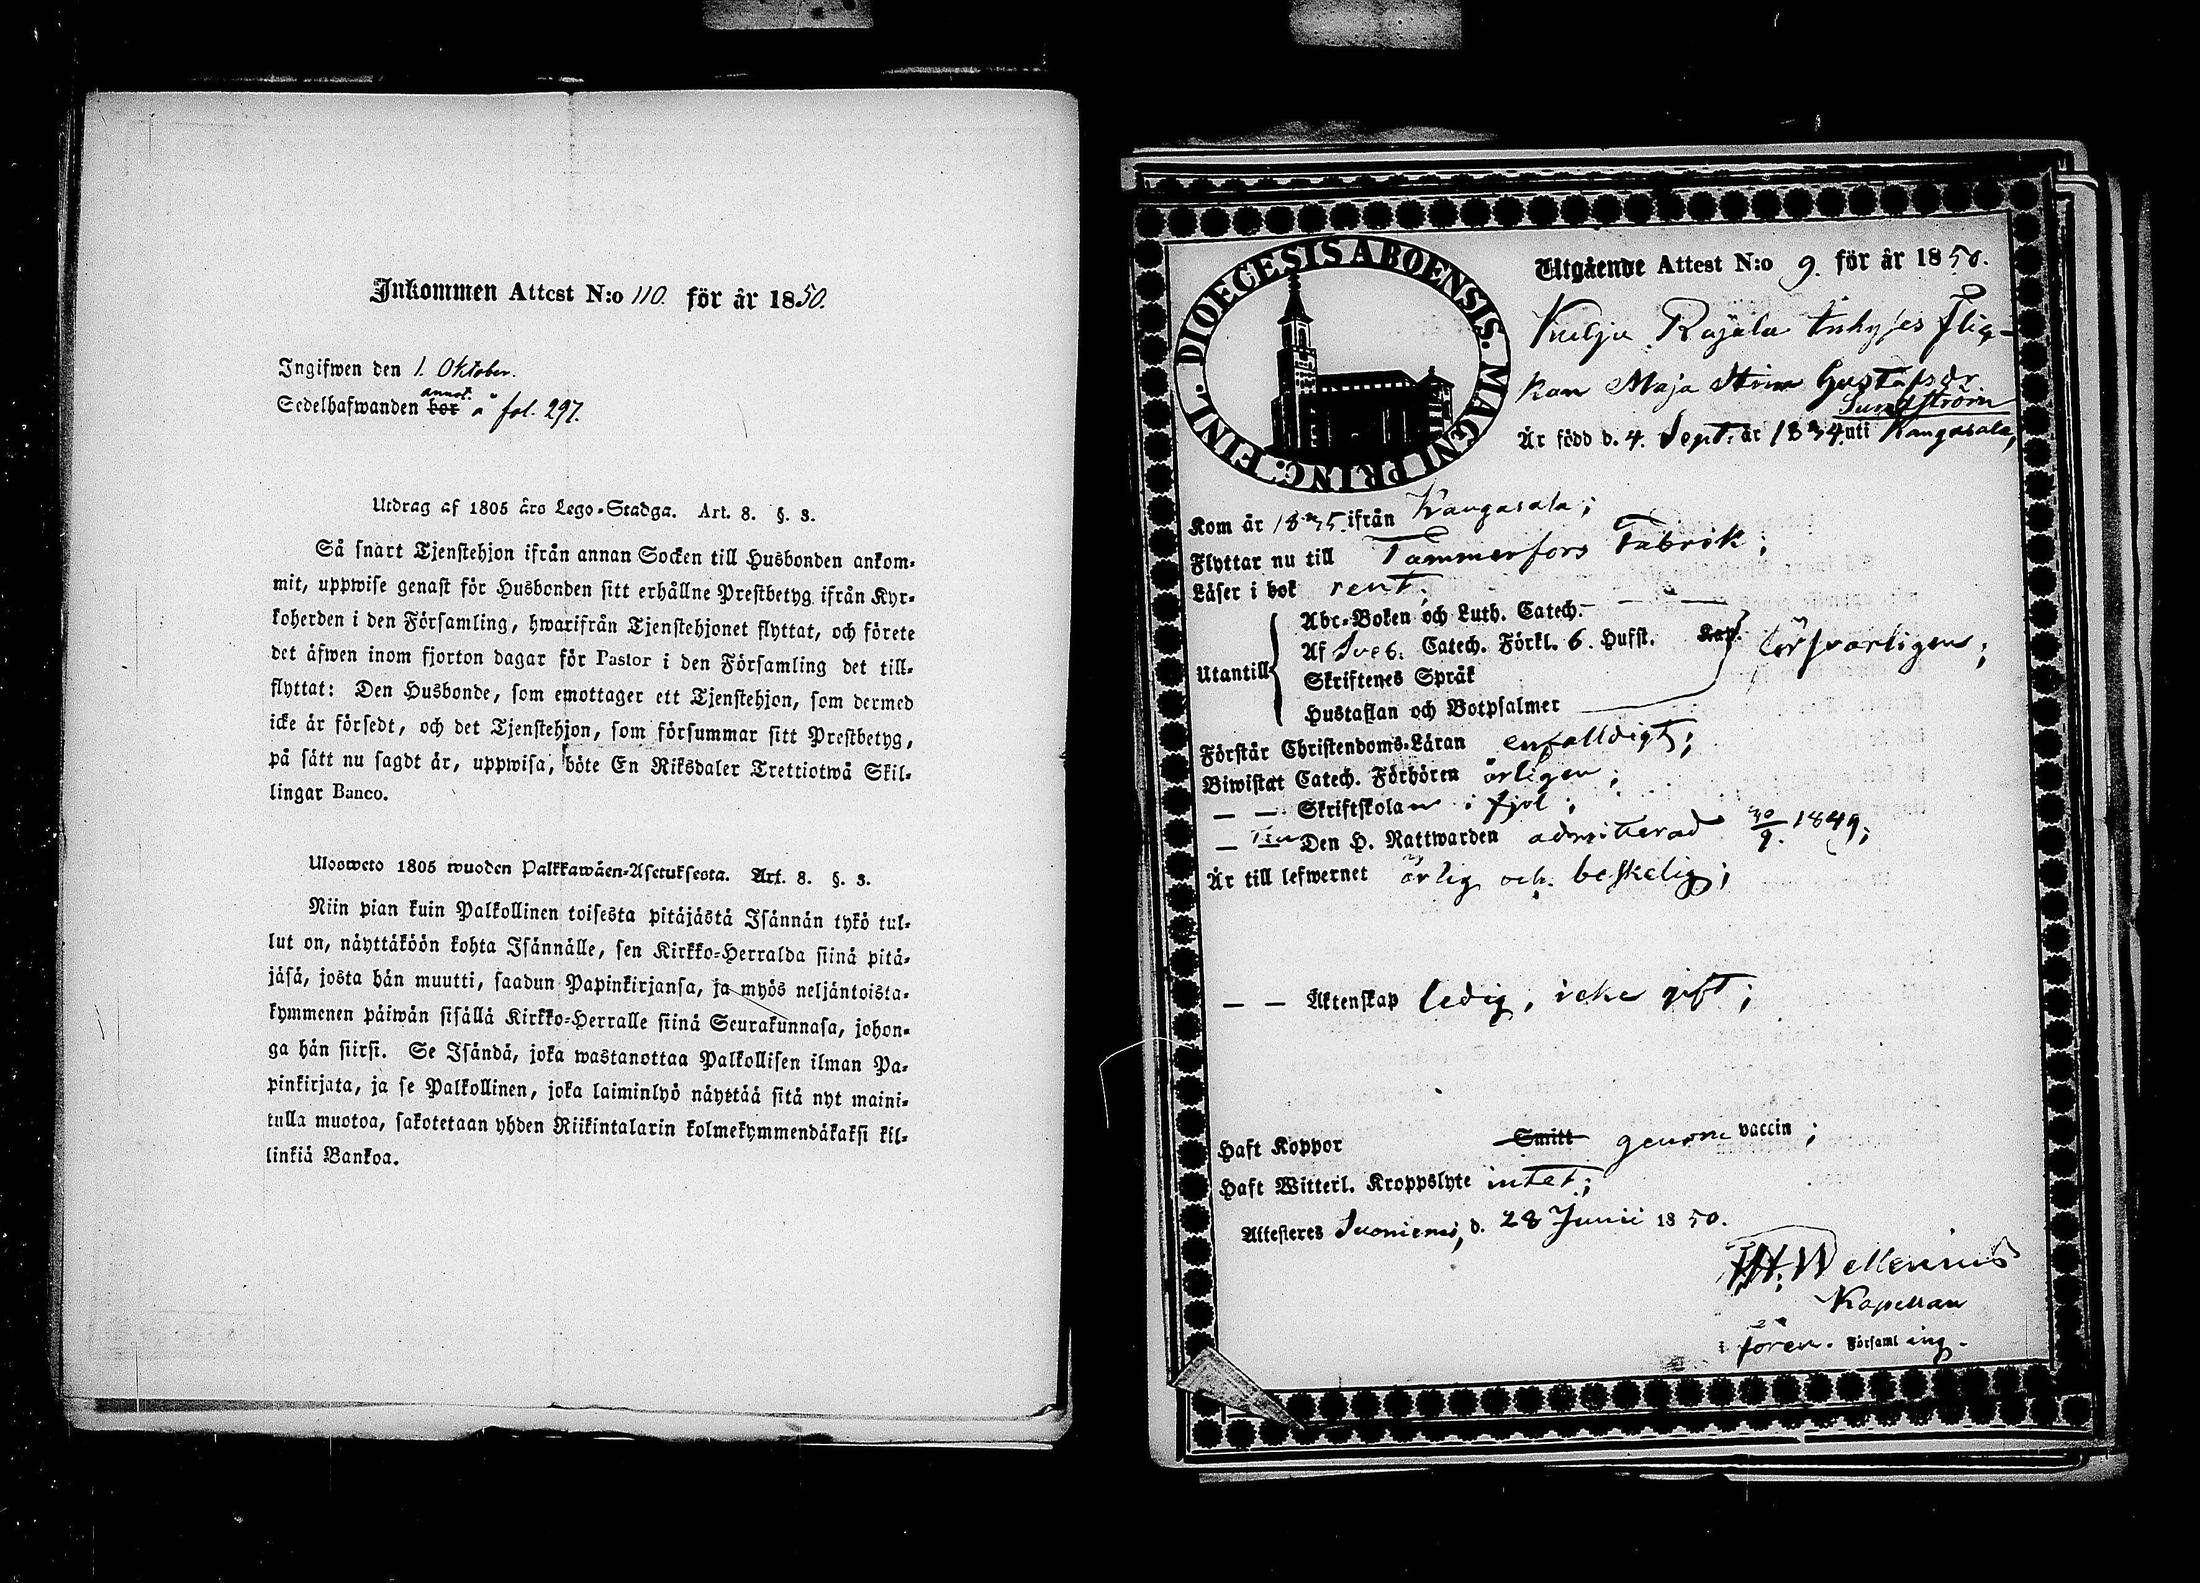 Inkommen Attest N:o 110. för år 1850.
Ingifwen den 1. Oktober.
annot.
Sedelhafwanden bor å fol. 297.
Utdrag af 1805 års Lego-Stadga. Art. 8. §. 3.
Så snart Tjenstehjon ifrån annan Socken till Husbonden ankom-
mit, uppwise genast för Husbonden sitt erhållne Prestbetyg ifrån Kyr-
koherden i den Församling, hwarifrån Tjenstehjonet flyttat, och förete
det äfwen inom fjorton dagar för Pastor i den Församling det till-
flyttat: Den Husbonde, som emottager ett Tjenstehjon, som dermed
icke är försedt, och det Tjenstehjon, som försummar sitt Prestbetyg,
på sätt nu sagdt är, uppwisa, böte En Riksdaler Trettiotwå Skil-
lingar Banco.
Ulosweto 1805 wuoden Palkkawäen-Asetuksesta. Art. 8. §. 3.
Niin pian kuin Palkollinen toisesta pitäjästä Isännän tykö tul-
lut on, näyttäköön kohta Isännälle, sen Kirkko-Herralda siinä pitä-
jäsä, josta hän muutti, saadun Papinkirjansa, ja myös neljäntoista-
kymmenen päiwän sisällä Kirkko-Herralle siinä Seurakunnasa, johon-
ga hän siirsi. Se Isändä, joka wastanottaa Palkollisen ilman Pa-
pinkirjata, ja se Palkollinen, joka laiminlyö näyttää sitä nyt maini-
tulla muotoa, sakotetaan yhden Riikintalarin kolmekymmendäkaksi kil-
linkiä Bankoa.
DIOECESIS ABOENSIS. MAGNI PRINC. FINL.
Utgående Attest N:o 9. för år 1850.
Kulju Rajala Inhyses Flic-
kan Maja Stina Gustafsdr
Sundström
Är född d. 4. Sept. år 1834. uti Kangasala,
Kom år 1835 ifrån Kangasala;
Flyttar nu till Tammerfors Fabrik;
Läser i bok rent;
Utantill
Abc-Boken och Luth. Catech.
Af Sveb. Catech. Förkl. 6. Hufst. Kap. försvarligen;
Skriftenes Språk
Hustaflan och Botpsalmer
Förstår Christendoms-Läran enfalldigt;
Biwistat Catech. Förhören årligen;
— — Skriftskolan i fjol;
— — Den H. Nattwarden admitterad 30/9. 1849;
Är till lefwernet ärlig och beskelig;
— — Äktenskap ledig, icke gift;
Haft Koppor Smitt genom vaccin;
Haft Witterl. Kroppslyte intet;
Attesteres Suoniemi, d. 28 Junii 1850.
Wellenius
Kapellan
i fören. Församl ing.